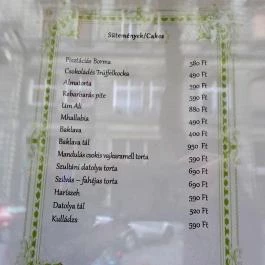 Sütemények/Cakes
Pisztáciás Borma 380 Ft
Csokoládés Trüffelkocka 490 Ft
Almatorta 390 Ft
Rebarbarás pite 590 Ft
Um Ali 880 Ft
Mhallabia 490 Ft
Baklava 400 Ft
Baklava tál 950 Ft
Mandulás csokis vajkaramell torta 590 Ft
Szultáni datolya torta 690 Ft
Szilvás – fahéjas torta 690 Ft
Hariszeh 590 Ft
Datolya tál 520 Ft
Kulládzs 590 Ft